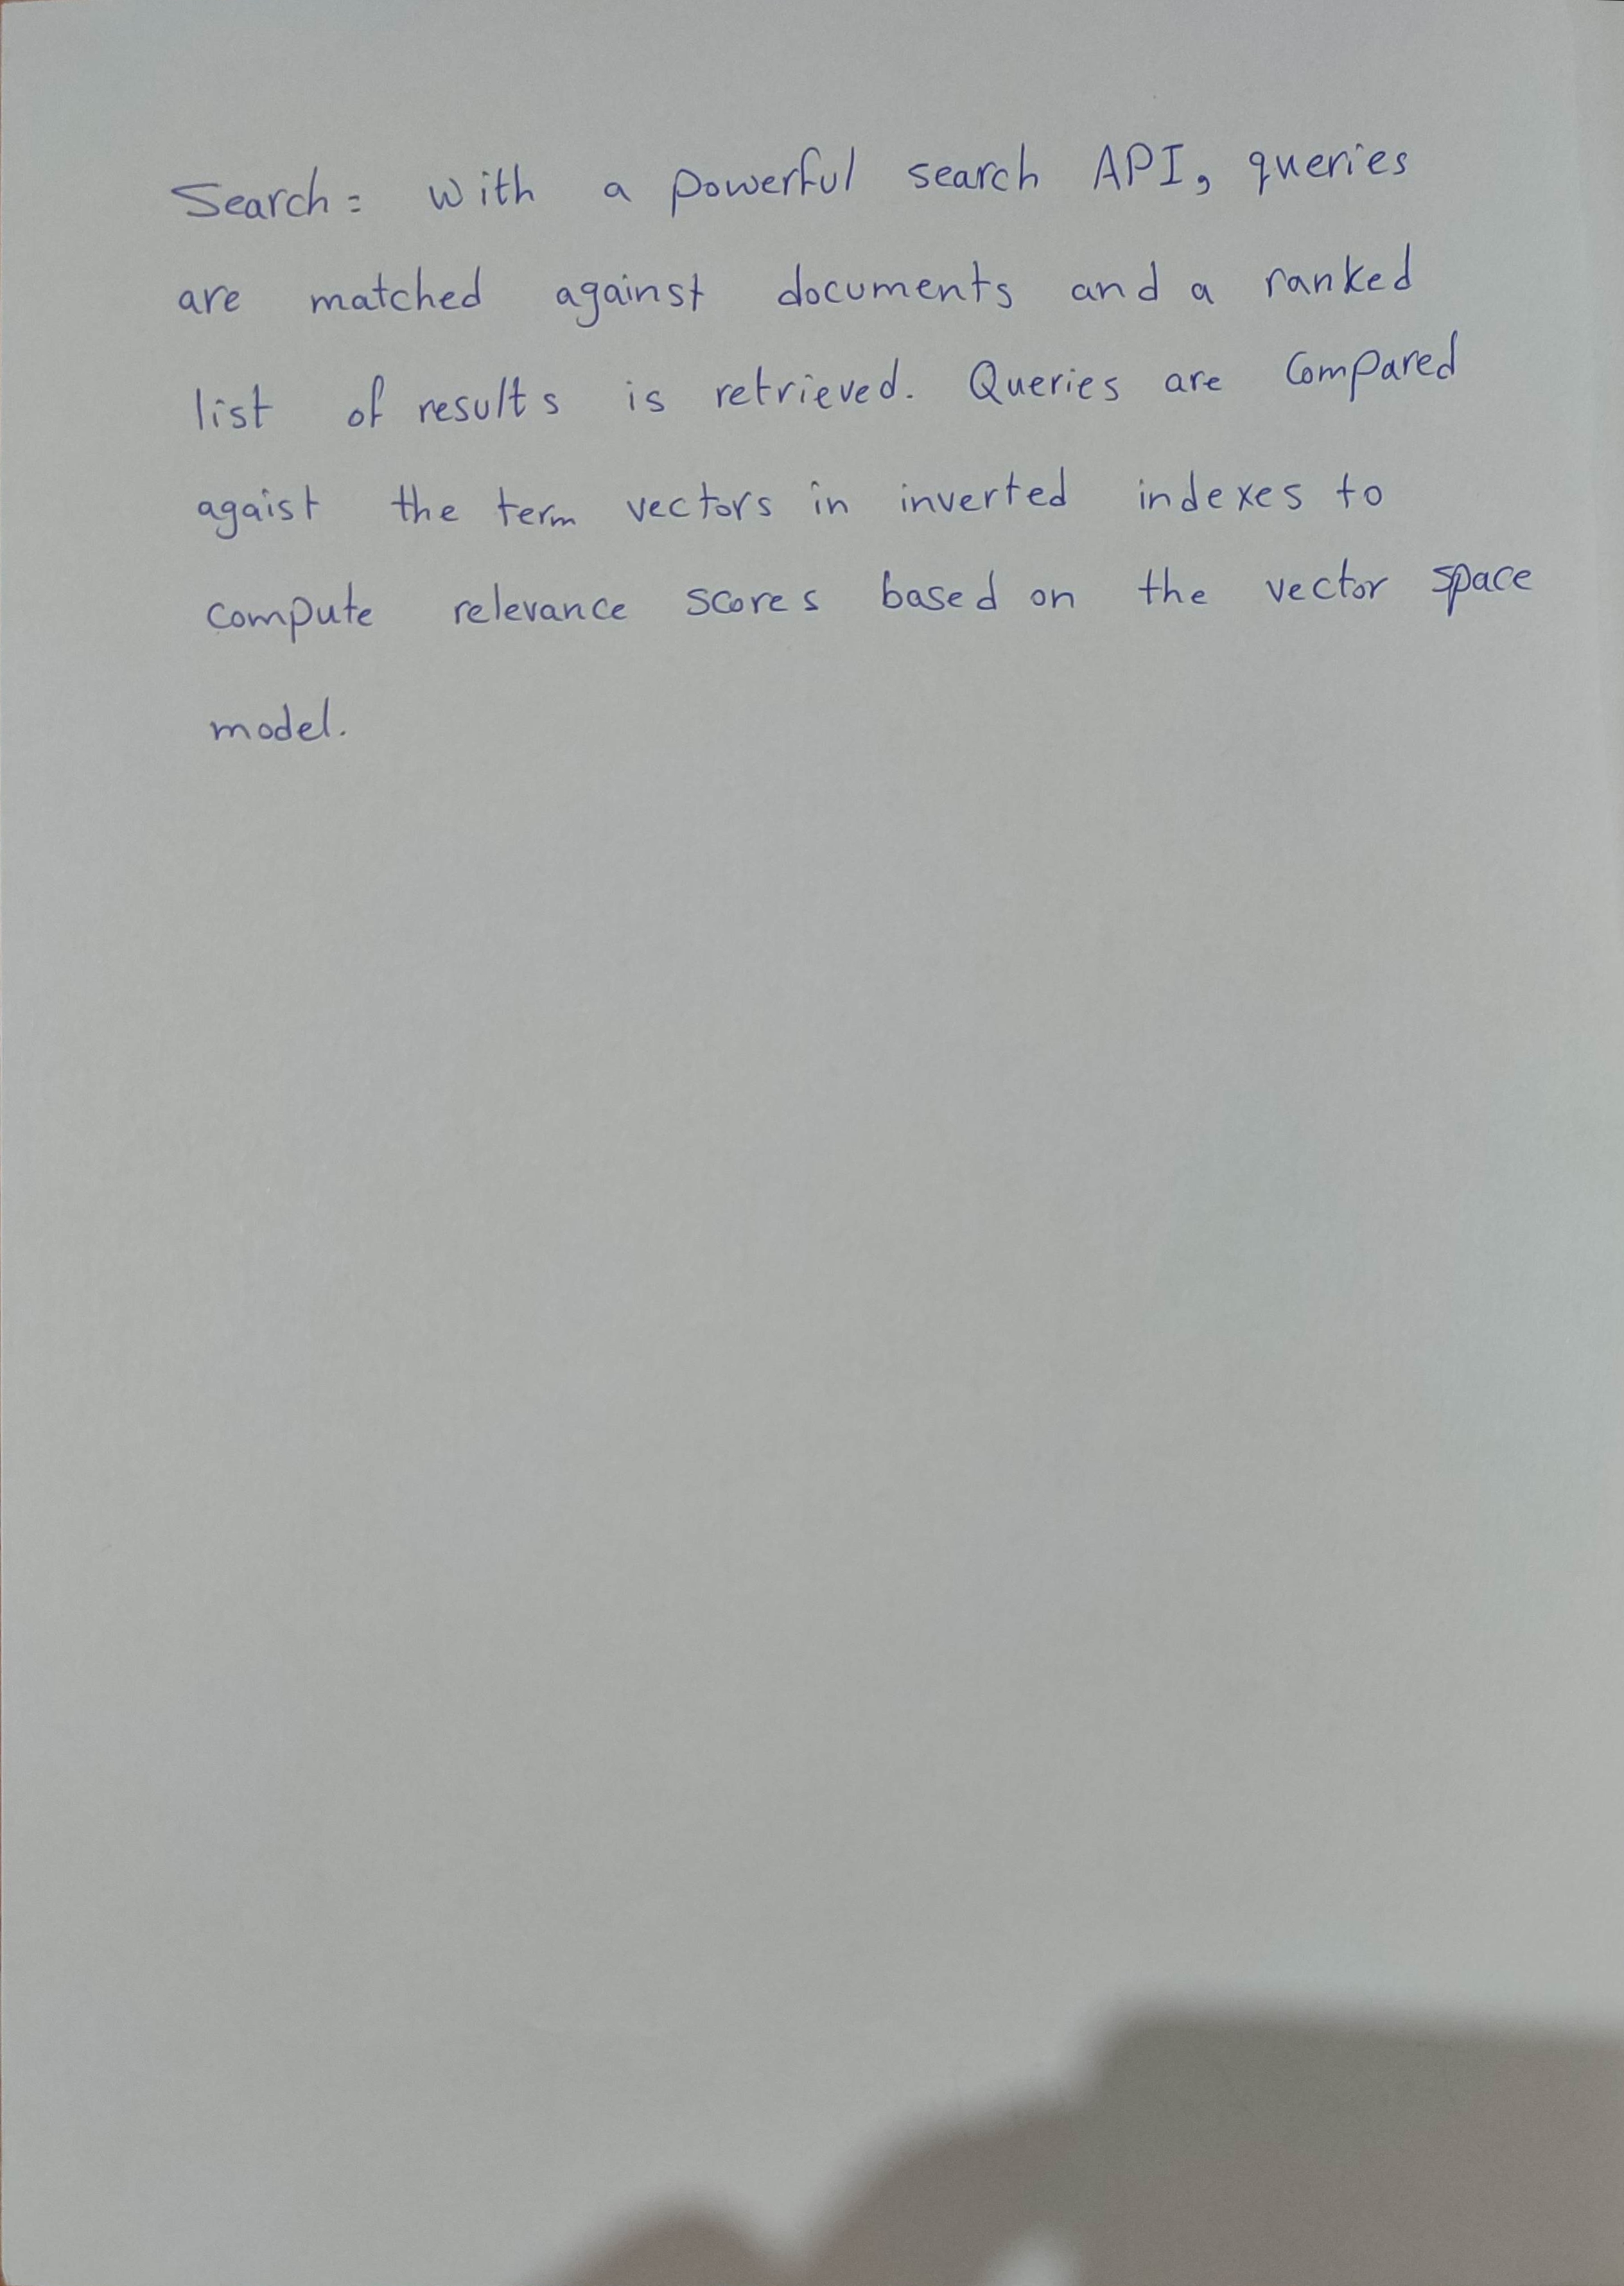 Search: With a powerful search API, queries
are matched against documents and a ranked
list of results is retrieved. Queries are compared
agaist the term vectors in inverted indexes to
compute relevance scores based on the vector space
model.